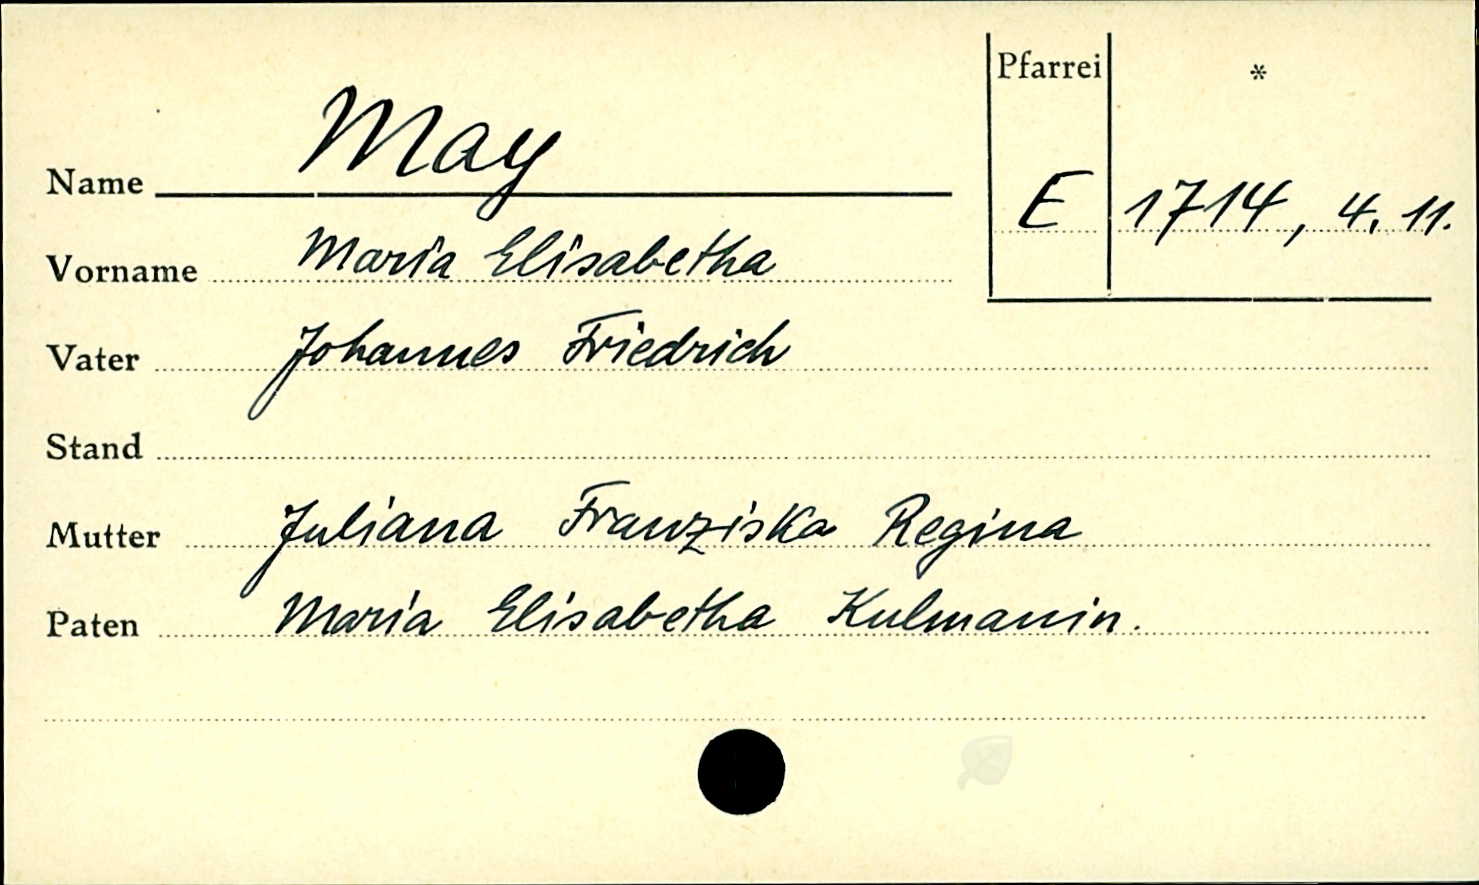 Pfarrei *
Name May
E 1714, 4. 11.
Vorname Maria Elisabetha
Vater Johannes Friedrich
Stand
Mutter Juliana Franziska Regina
Paten Maria Elisabetha Kulmanin.